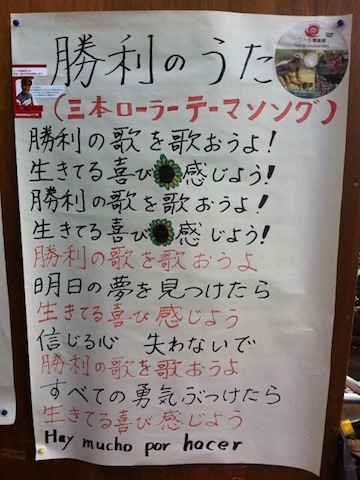 勝利のうた
(三本ローラーテーマソング)
勝利の歌を歌おうよ!
生きてる喜び感じよう!
勝利の歌を歌おうよ!
生きてる喜び感じよう!
勝利の歌を歌おうよ
明日の夢を見つけたら
生きてる喜び感じよう
信じる心 失わないで
勝利の歌を歌おうよ
すべての勇気ぶつけたら
生きてる喜び感じよう
Hay mucho por hacer